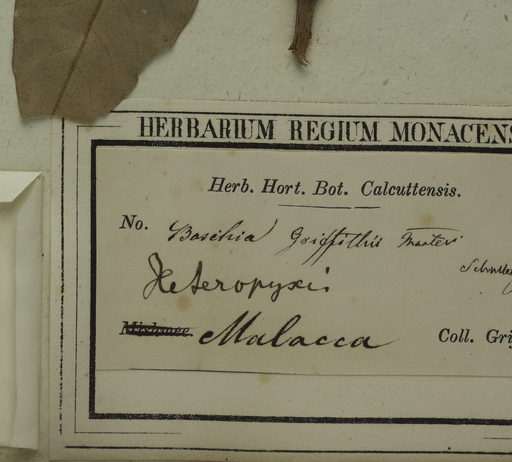 HERBARIUM REGIUM MONACENS
Herb. Hort. Bot. Calcuttensis.
No. Boschia Griffithii Masters
Heteropyxis
Malacca Coll. Gri